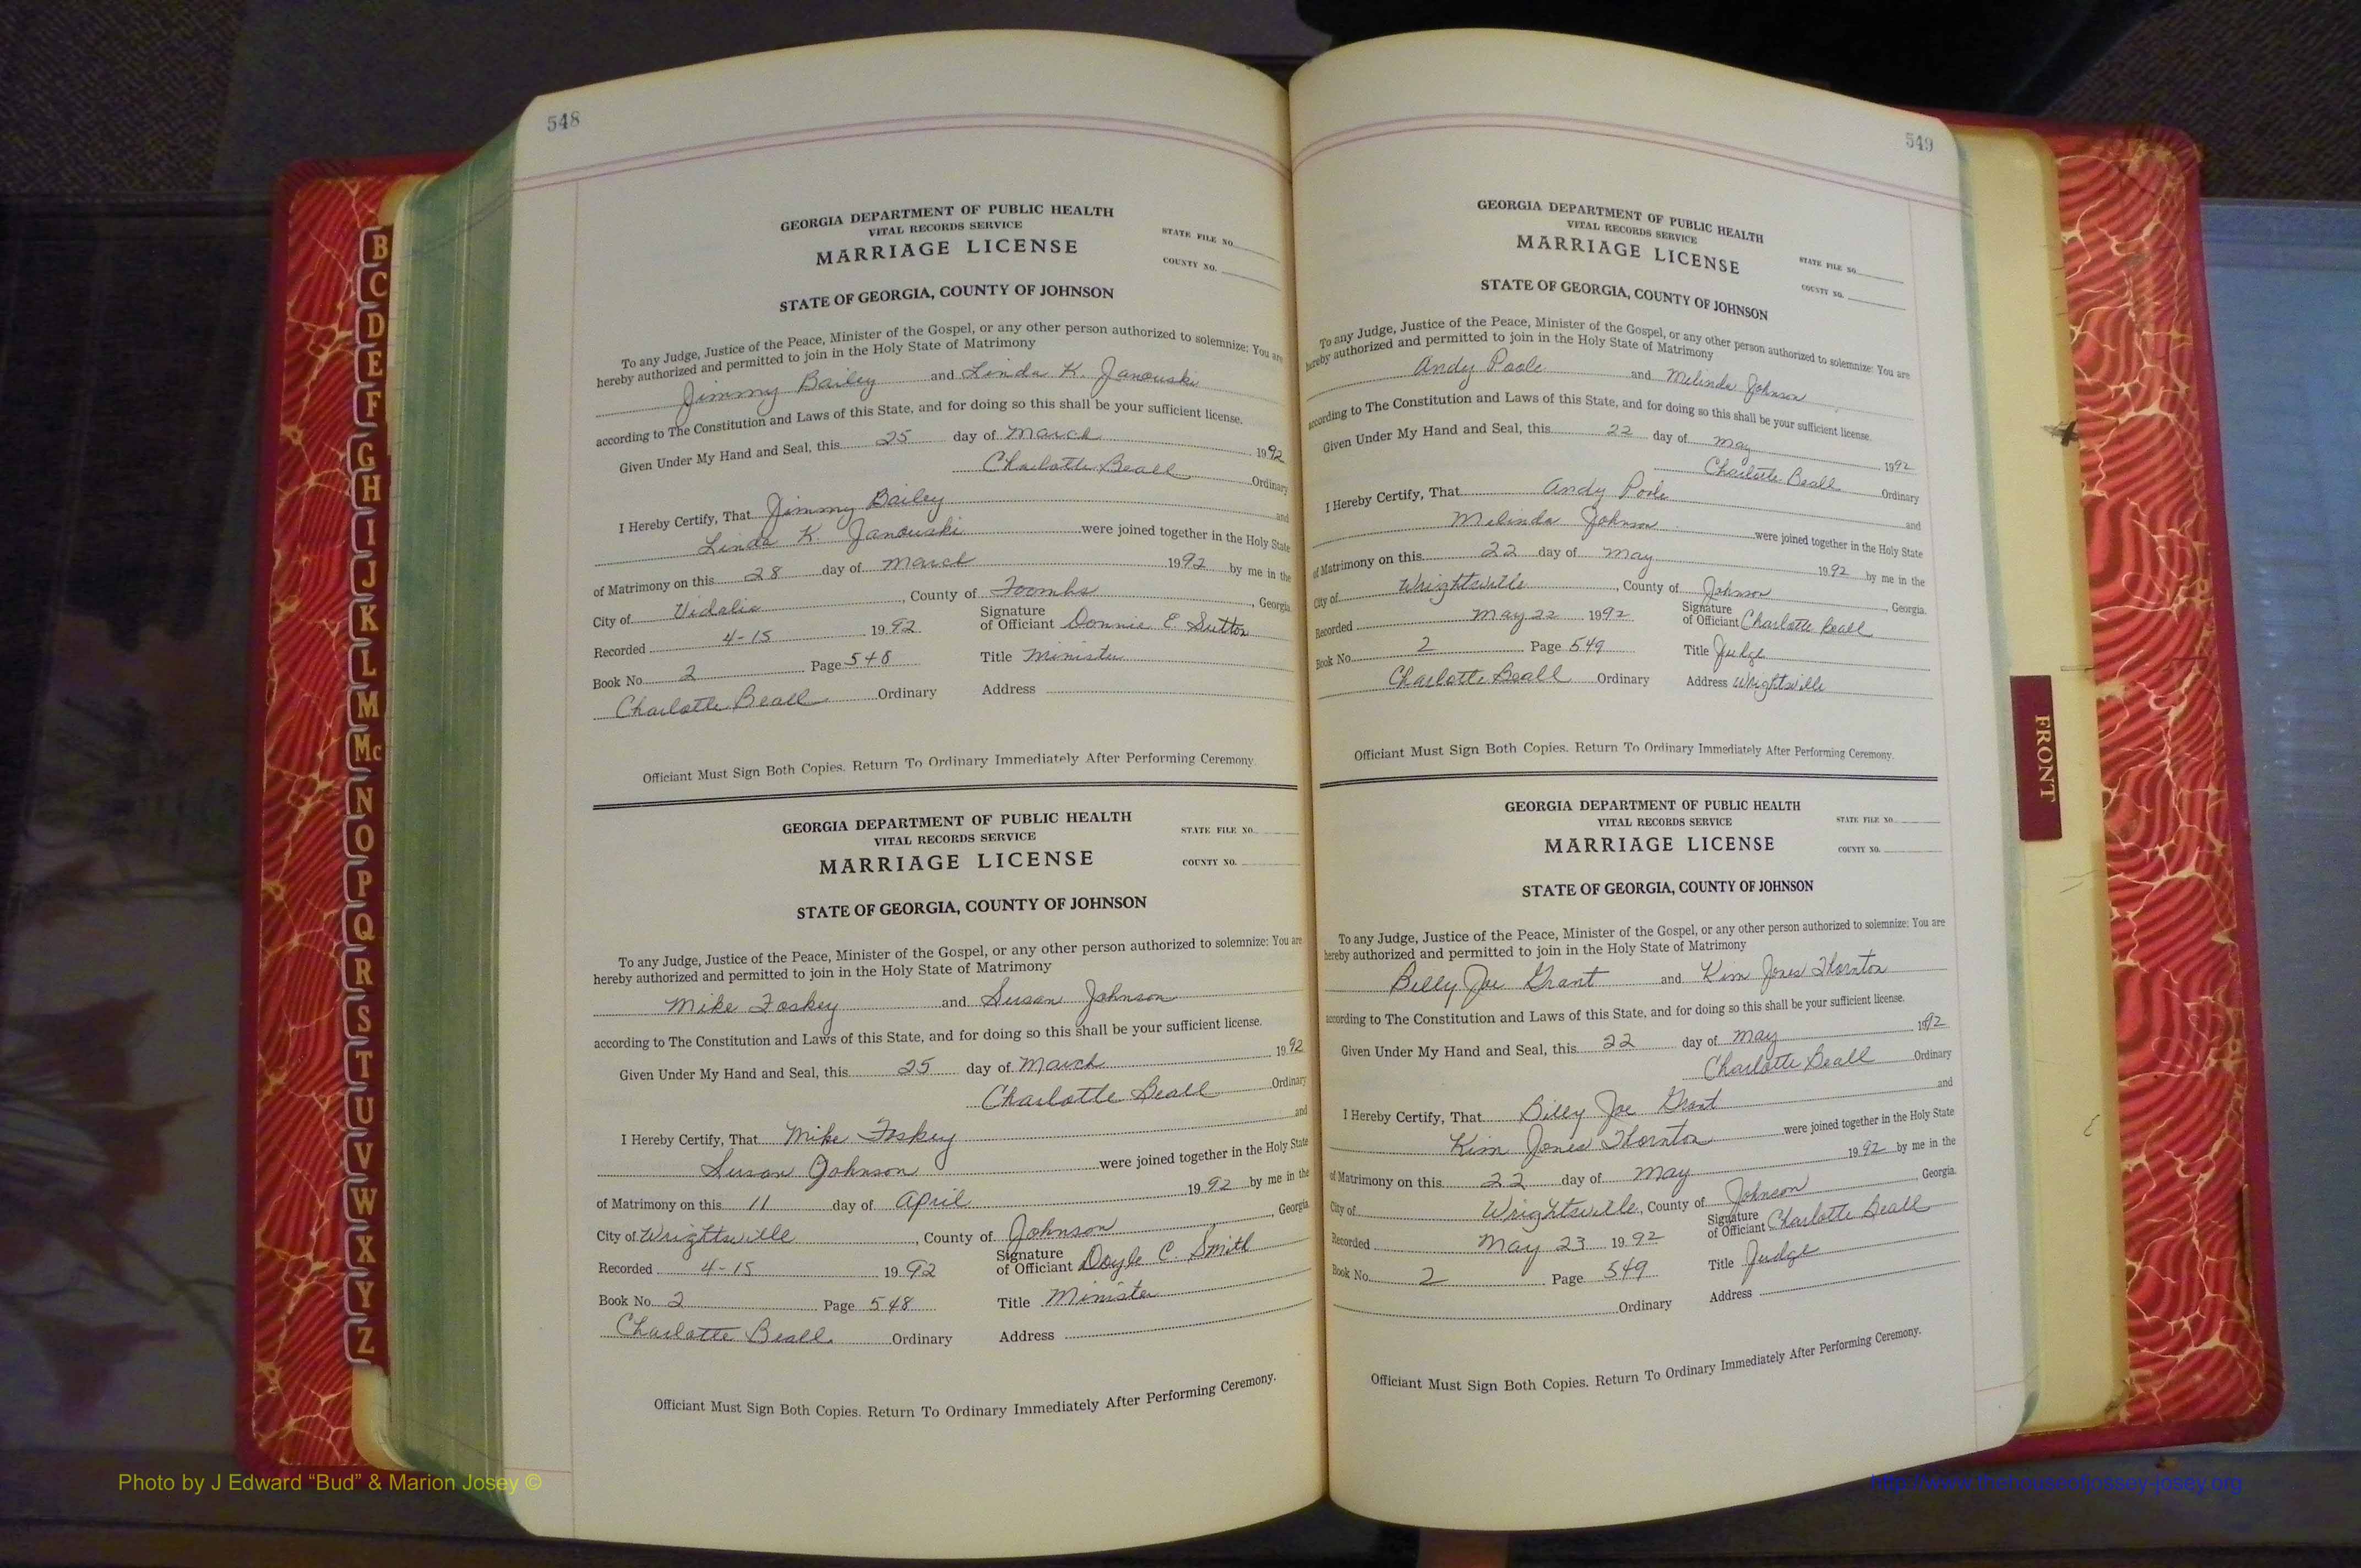 548
GEORGIA DEPARTMENT OF PUBLIC HEALTH
VITAL RECORDS SERVICE
MARRIAGE LICENSE
STATE FILE NO.
COUNTY NO.
STATE OF GEORGIA, COUNTY OF JOHNSON
To any Judge, Justice of the Peace, Minister of the Gospel, or any other person authorized to solemnize: You are
hereby authorized and permitted to join in the Holy State of Matrimony
Jimmy Bailey and Linda K. Janouski
according to The Constitution and Laws of this State, and for doing so this shall be your sufficient license.
Given Under My Hand and Seal, this 25 day of March 1992
Charlotte Beall Ordinary
I Hereby Certify, That Jimmy Bailey and
Linda K. Janouski were joined together in the Holy State
of Matrimony on this 28 day of March 1992 by me in the
City of Vidalia, County of Toombs, Georgia
Recorded 4-15 1992 Signature of Officiant Donnie E. Sutton
Book No. 2 Page 548 Title Minister
Charlotte Beall Ordinary Address
Officiant Must Sign Both Copies. Return To Ordinary Immediately After Performing Ceremony.
GEORGIA DEPARTMENT OF PUBLIC HEALTH
VITAL RECORDS SERVICE
MARRIAGE LICENSE
STATE FILE NO.
COUNTY NO.
STATE OF GEORGIA, COUNTY OF JOHNSON
To any Judge, Justice of the Peace, Minister of the Gospel, or any other person authorized to solemnize: You are
hereby authorized and permitted to join in the Holy State of Matrimony
Mike Foskey and Susan Johnson
according to The Constitution and Laws of this State, and for doing so this shall be your sufficient license.
Given Under My Hand and Seal, this 25 day of March 1992
Charlotte Beall Ordinary
I Hereby Certify, That Mike Foskey and
Susan Johnson were joined together in the Holy State
of Matrimony on this 11 day of April 1992 by me in the
City of Wrightsville, County of Johnson, Georgia
Recorded 4-15 1992 Signature of Officiant Doyle C. Smith
Book No. 2 Page 548 Title Minister
Charlotte Beall Ordinary Address
Officiant Must Sign Both Copies. Return To Ordinary Immediately After Performing Ceremony.
549
GEORGIA DEPARTMENT OF PUBLIC HEALTH
VITAL RECORDS SERVICE
MARRIAGE LICENSE
STATE FILE NO.
COUNTY NO.
STATE OF GEORGIA, COUNTY OF JOHNSON
To any Judge, Justice of the Peace, Minister of the Gospel, or any other person authorized to solemnize: You are
hereby authorized and permitted to join in the Holy State of Matrimony
Andy Poole and Melinda Johnson
according to The Constitution and Laws of this State, and for doing so this shall be your sufficient license.
Given Under My Hand and Seal, this 22 day of May 1992
Charlotte Beall Ordinary
I Hereby Certify, That Andy Poole and
Melinda Johnson were joined together in the Holy State
of Matrimony on this 22 day of May 1992 by me in the
City of Wrightsville, County of Johnson, Georgia.
Recorded May 22 1992 Signature of Officiant Charlotte Beall
Book No. 2 Page 549 Title Judge
Charlotte Beall Ordinary Address Wrightsville
Officiant Must Sign Both Copies. Return To Ordinary Immediately After Performing Ceremony.
GEORGIA DEPARTMENT OF PUBLIC HEALTH
VITAL RECORDS SERVICE
MARRIAGE LICENSE
STATE FILE NO.
COUNTY NO.
STATE OF GEORGIA, COUNTY OF JOHNSON
To any Judge, Justice of the Peace, Minister of the Gospel, or any other person authorized to solemnize: You are
hereby authorized and permitted to join in the Holy State of Matrimony
Billy Joe Grant and Kim Jones Thornton
according to The Constitution and Laws of this State, and for doing so this shall be your sufficient license.
Given Under My Hand and Seal, this 22 day of May 1992
Charlotte Beall Ordinary
I Hereby Certify, That Billy Joe Grant and
Kim Jones Thornton were joined together in the Holy State
of Matrimony on this 22 day of May 1992 by me in the
City of Wrightsville, County of Johnson, Georgia.
Recorded May 23 1992 Signature of Officiant Charlotte Beall
Book No. 2 Page 549 Title Judge
Ordinary Address
Officiant Must Sign Both Copies. Return To Ordinary Immediately After Performing Ceremony.
B
C
D
E
F
G
H
I
J
K
L
M
Mc
N
O
P
Q
R
S
T
U
V
W
X
Y
Z
FRONT
Photo by J Edward “Bud” & Marion Josey ©
http://www.thehouseofjossey-josey.org